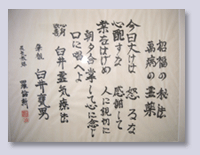 招福の秘法
萬病の霊薬
今日丈けは 怒るな
心配すな 感謝して
業をはげめ 人に親切に
朝夕合掌して心に念じ
口に唱へよ
臼井霊気療法
肇祖
臼井甕男